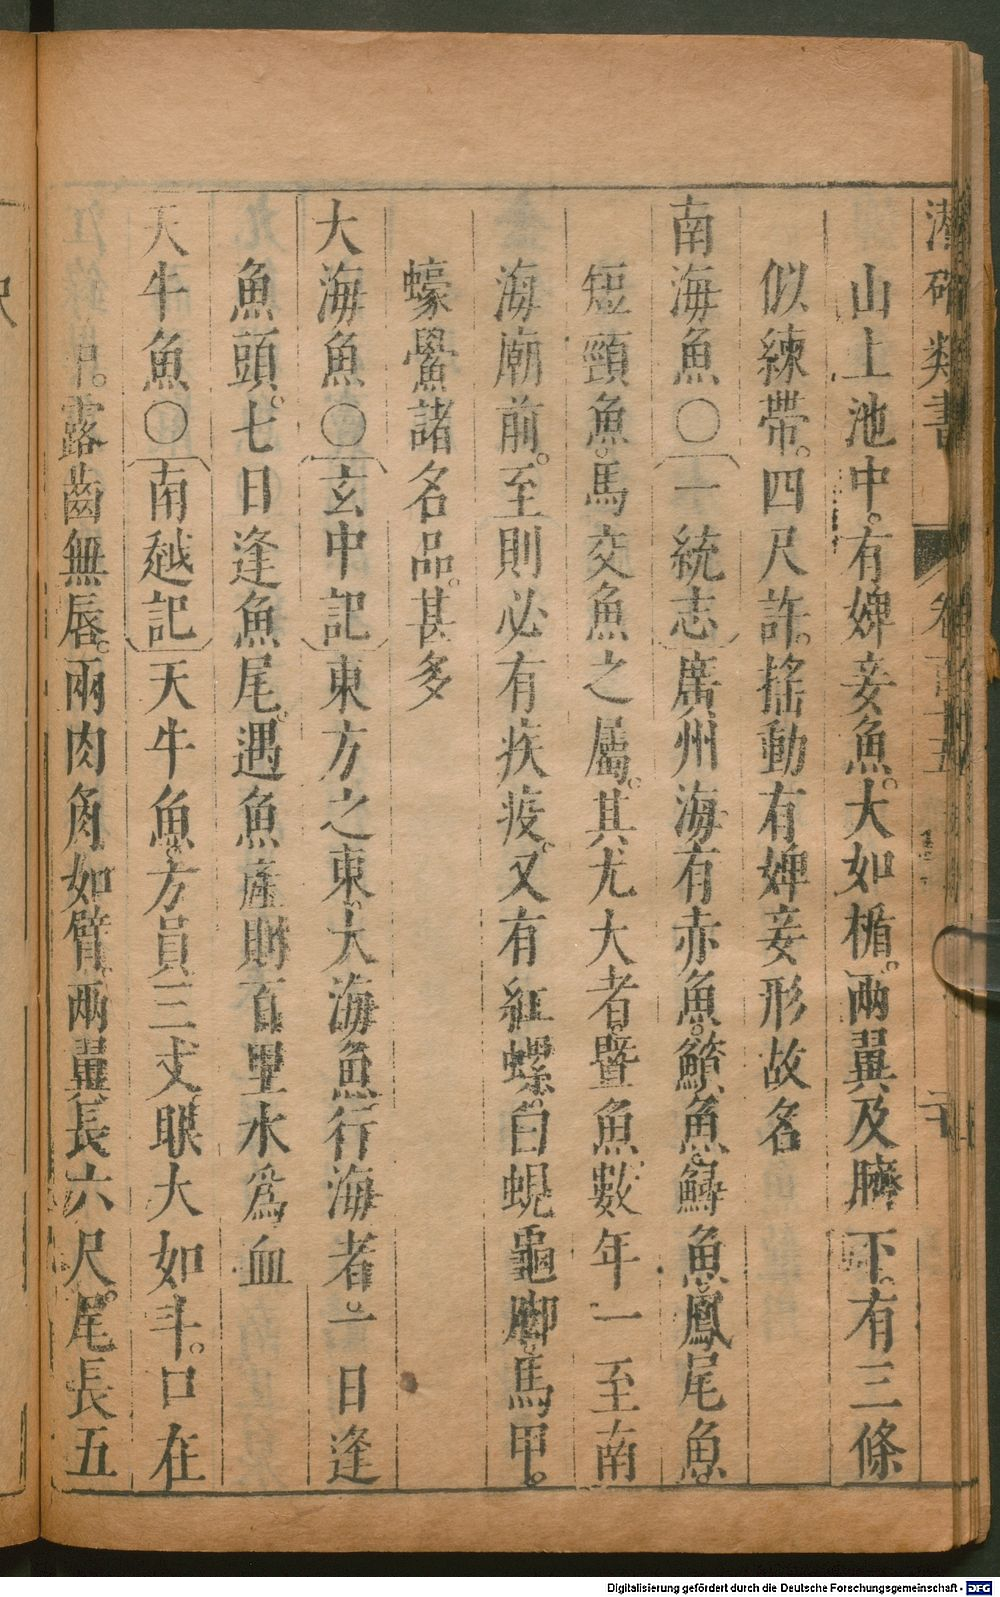 潛確類書
山上池中。有婢妾魚。大如楯。兩翼及臍下。有三條
似練帶。四尺許。搖動有婢妾形故名
南海魚〇一統志廣州海有赤魚。魚。鱘魚。鳳尾魚。
短頸魚。馬交魚之屬。其尤大者。曁魚數年一至南
海廟前。至則必有疾疫。又有紅螺。白蜆龜脚。馬甲。
蠔鱟諸名品。甚多
大海魚〇玄中記東方之東。大海魚行海者。一日逢
魚頭。七日逢魚尾。遇魚產則百里水爲血
天牛魚〇南越記天牛魚。方員三丈。眼大如斗。口在
露齒無唇。兩肉角如臂。兩翼長六尺。尾長五
Digitalisierung gefördert durch die Deutsche Forschungsgemeinschaft - DFG